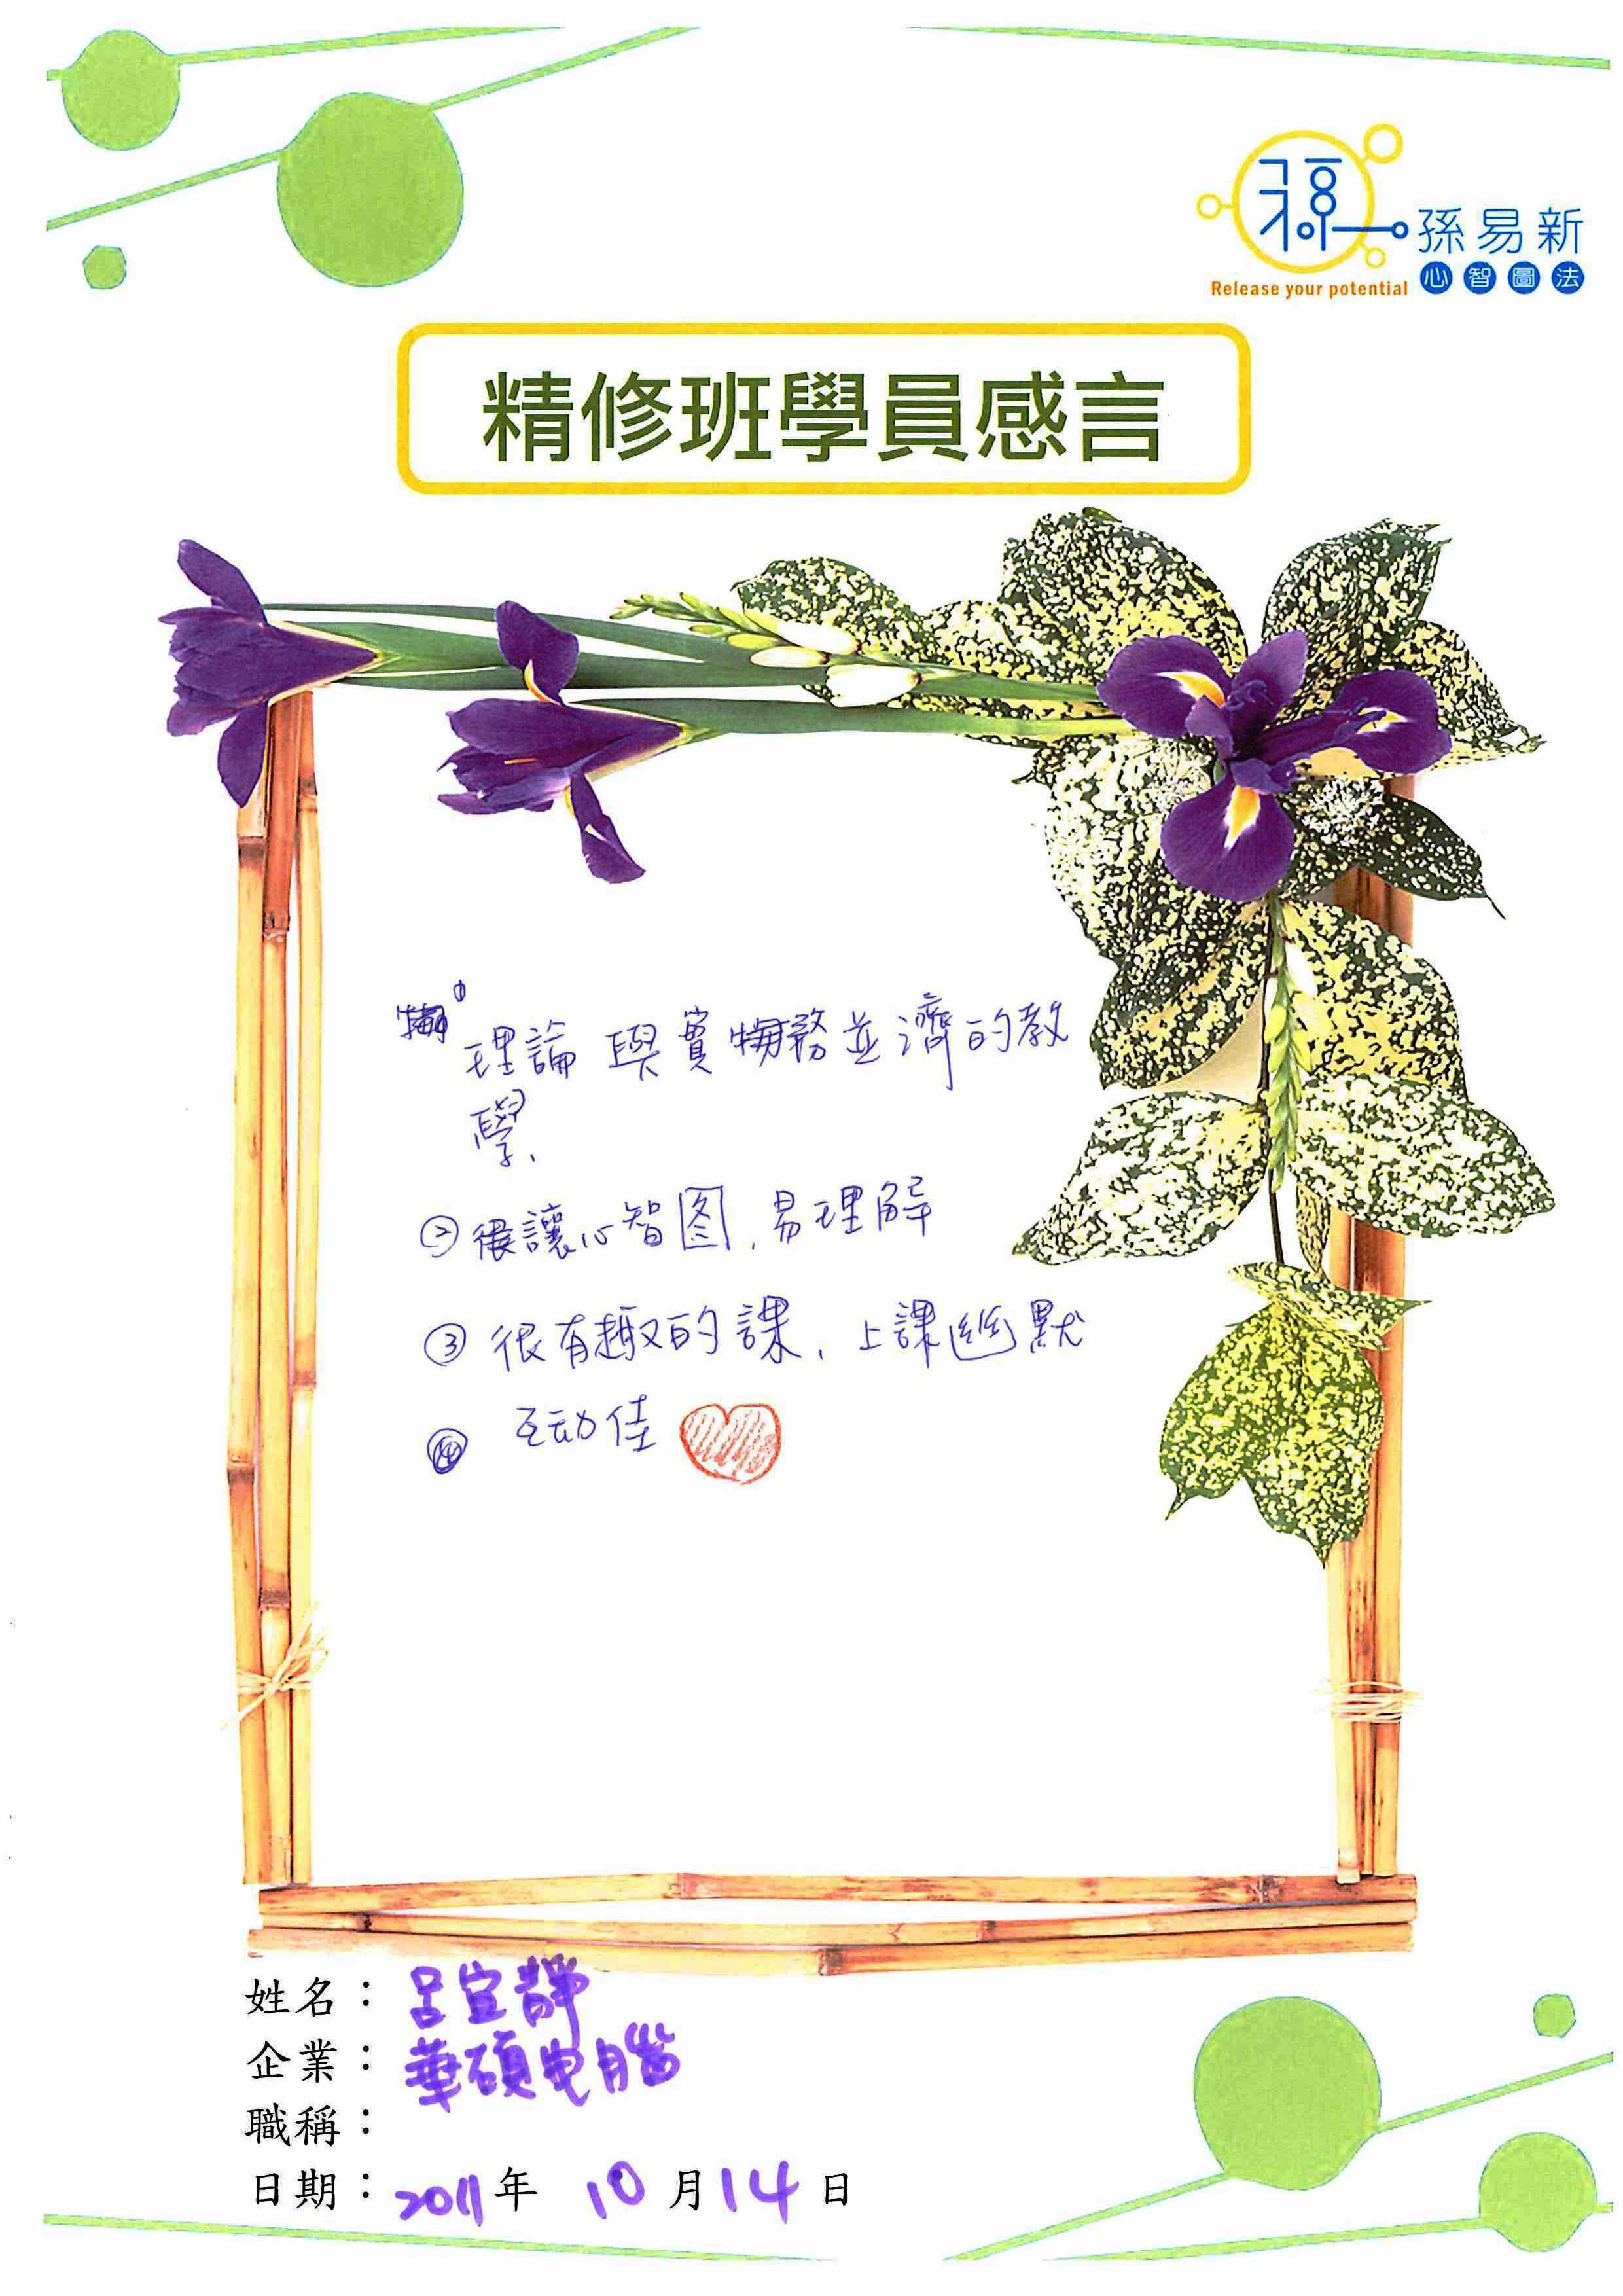 孫易新
心智圖法
Release your potential
精修班學員感言
理論與實務並濟的教
學、
② 很讓心智图,易理解
③ 很有趣的課,上課幽默
互动佳
姓名：呂宜靜
企業：華碩电腦
職稱：
日期：2011年 10月14日